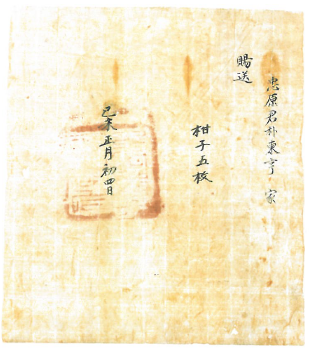 忠原君朴東亨 家
賜送
柑子五枚
己未正月初四日